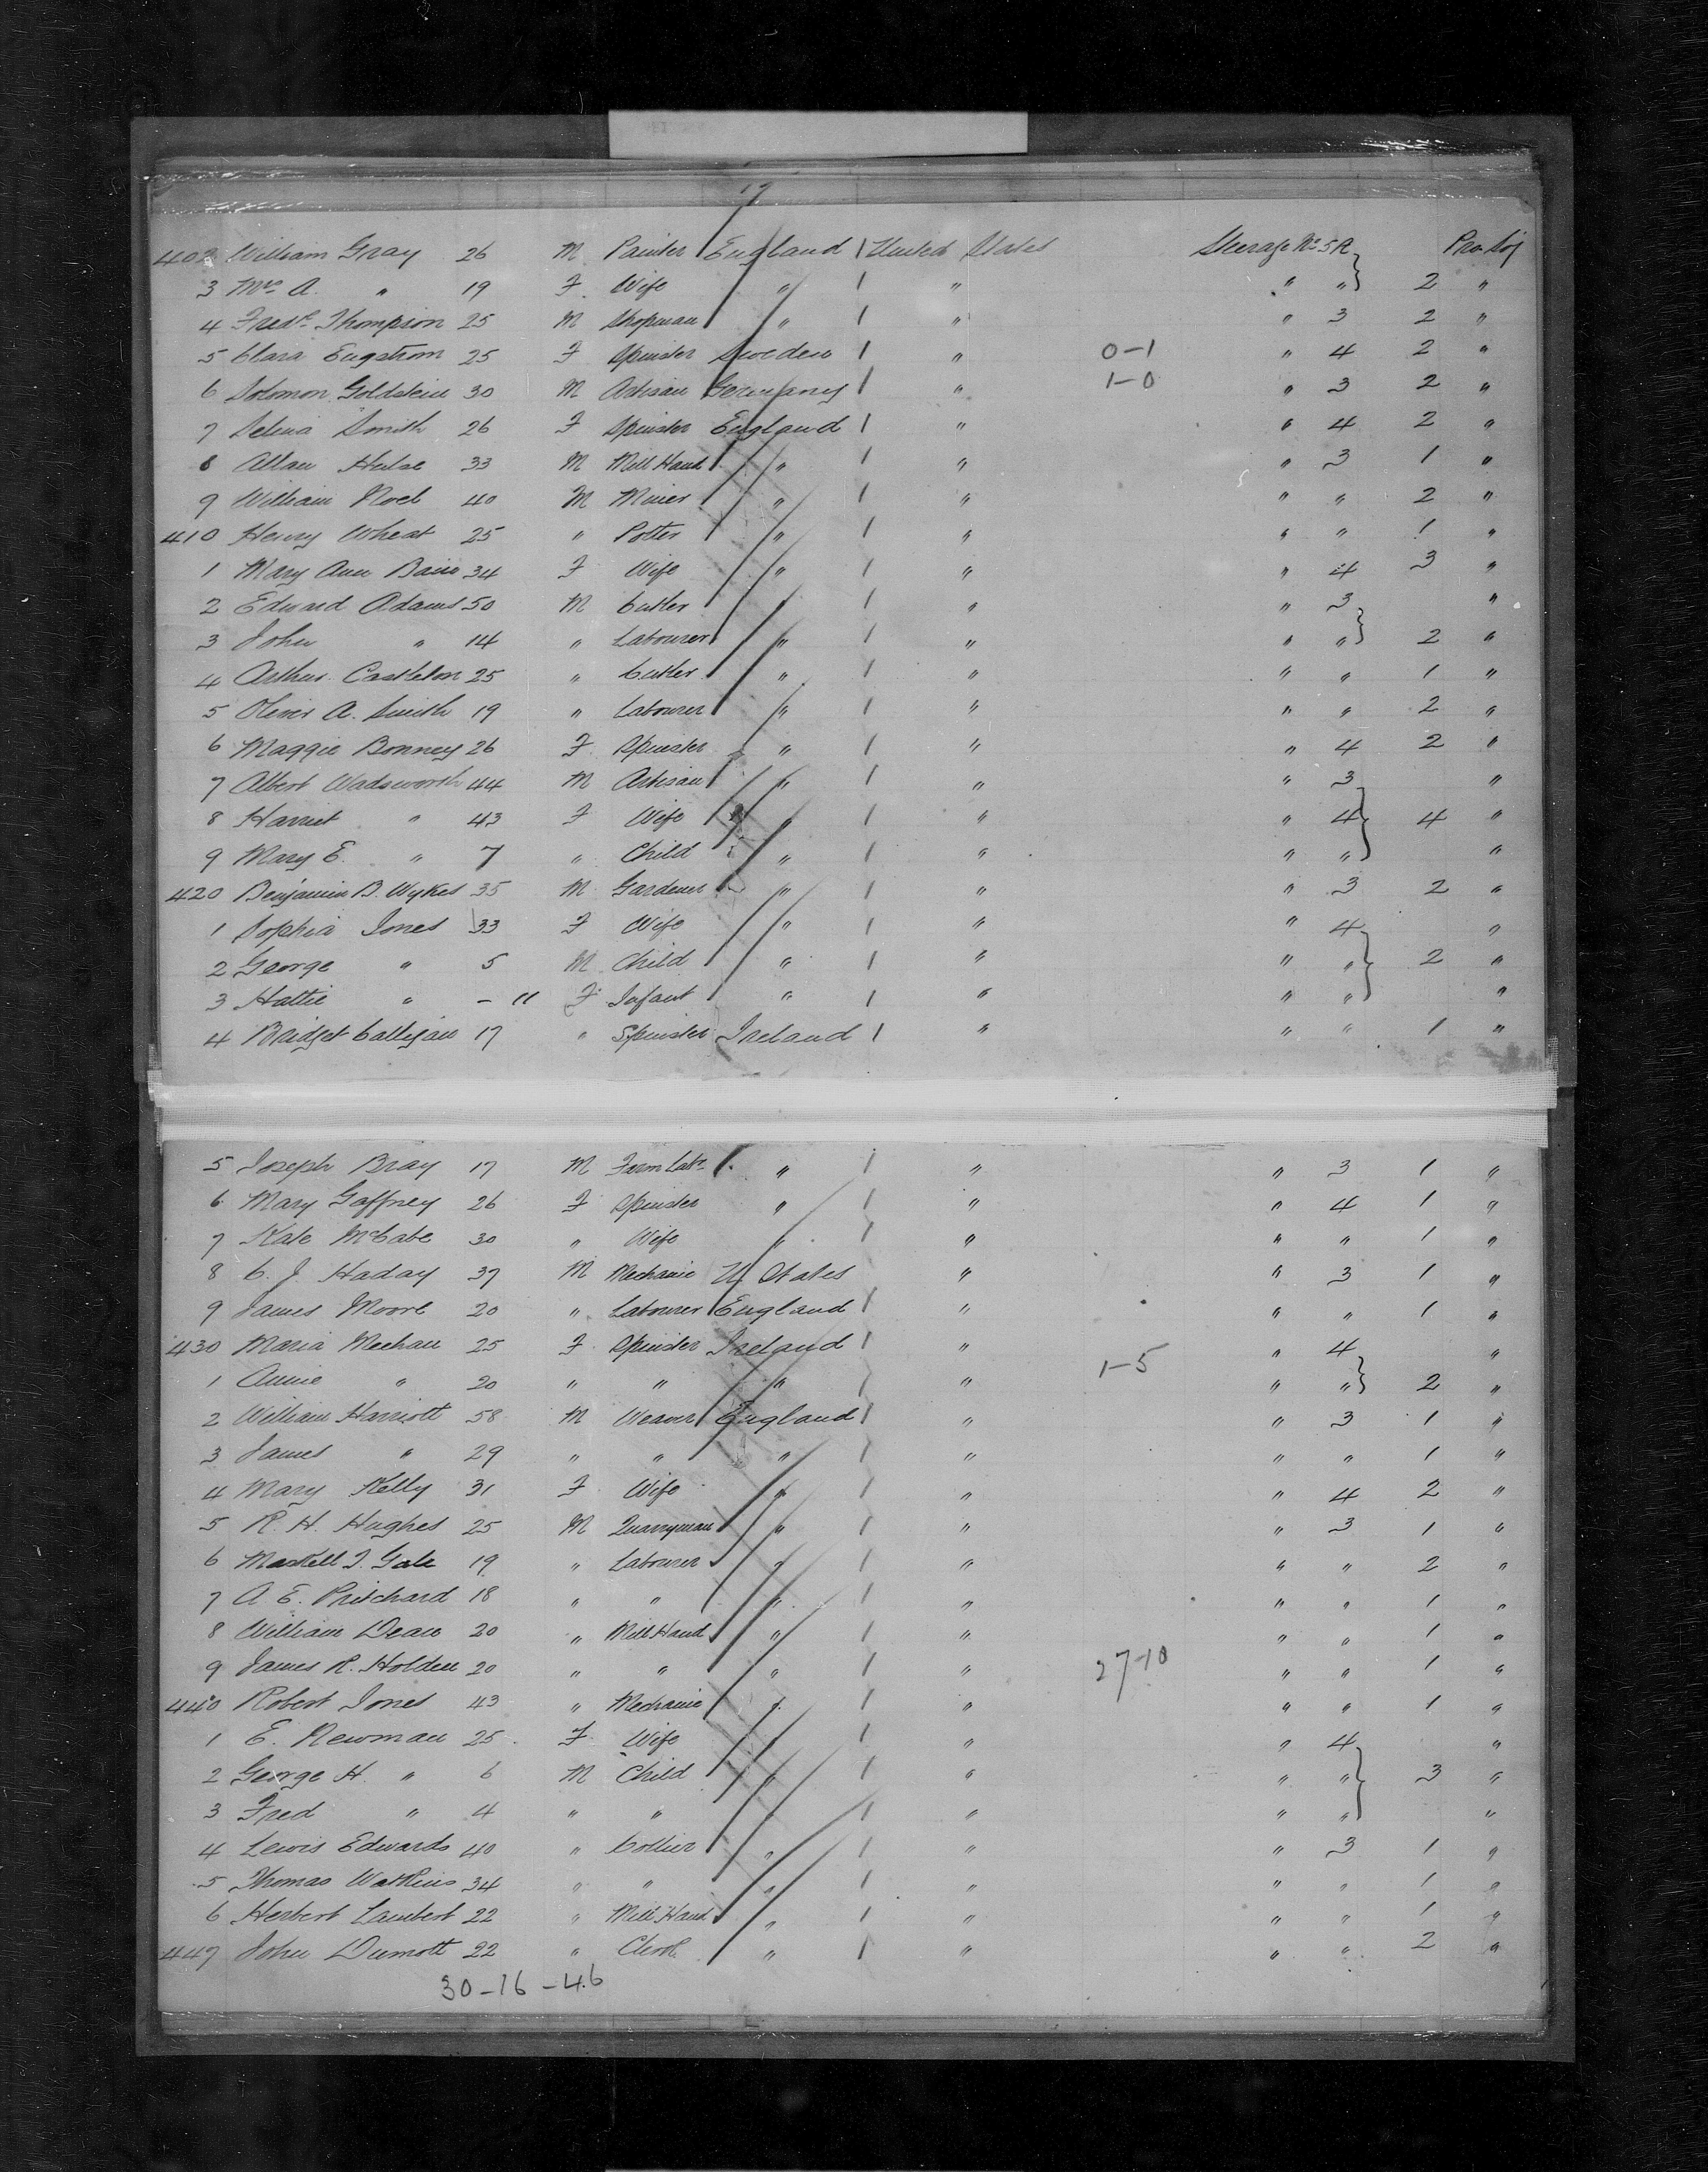 17
402 William Gray 26 M Painter England 1 United States Steerage No 5 R Pro Soj
3 Mrs A. " 19 F Wife " 1 " " " } 2 "
4 Fredk Thompson 25 M Shopman " 1 " " 3 2 "
5 Clara Engstrom 25 F Spinster Sweden 1 " 0-1 " 4 2 "
6 Solomon Goldstein 30 M Artisan Germany 1 " 1-0 " 3 2 "
7 Selina Smith 26 F Spinster England 1 " " 4 2 "
8 Allan Hulse 33 M Mill Hand " 1 " " 3 1 "
9 William Noel 40 M Miner " 1 " " " 2 "
410 Henry Wheat 25 " Potter " 1 " " " 1 "
1 Mary Ann Bain 34 F Wife " 1 " " 4 3 "
2 Edward Adams 50 M Cutler " 1 " " 3 "
3 John " 14 " Labourer " 1 " " " } 2 "
4 Arthur Castleton 25 " Cutler " 1 " " " 1 "
5 Oliver A. Smith 19 " Labourer " 1 " " " 2 "
6 Maggie Bonney 26 F Spinster " 1 " " 4 2 "
7 Albert Wadsworth 44 M Artisan " 1 " " 3 "
8 Harriet " 43 F Wife " 1 " " 4 } 4 "
9 Mary E. " 7 " Child " 1 " " " "
420 Benjamin B. Wykes 35 M Gardener " 1 " " 3 2 "
1 Sophia Jones 33 F Wife " 1 " " 4 "
2 George " 5 M Child " 1 " " " } 2 "
3 Hattie " - 11 F Infant " 1 " " " "
4 Bridget Calligan 17 " Spinster Ireland 1 " " " 1 "
5 Joseph Bray 17 M Farm Labr " 1 " " 3 1 "
6 Mary Gaffney 26 F Spinster " 1 " " 4 1 "
7 Kate McCabe 30 " Wife " 1 " " " 1 "
8 C. J. Haday 37 M Mechanic U. States " " 3 1 "
9 James Moore 20 " Labourer England 1 " " " 1 "
430 Maria Meehan 25 F Spinster Ireland 1 " " 4 "
1 Annie " 20 " " " 1 " 1-5 " " } 2 "
2 William Harriott 58 M Weaver England 1 " " 3 1 "
3 James " 29 " " " 1 " " " 1 "
4 Mary Kelly 31 F Wife " 1 " " 4 2 "
5 R. H. Hughes 25 M Quarryman " 1 " " 3 1 "
6 Maskell J. Gale 19 " Labourer " 1 " " " 2 "
7 A. E. Pritchard 18 " " " 1 " " " 1 "
8 William Dean 20 " Mill Hand " 1 " " " 1 "
9 James R. Holden 20 " " " 1 " 27-10 " " 1 "
440 Robert Jones 43 " Mechanic " 1 " " " 1 "
1 E. Newman 25 F Wife " 1 " " 4 "
2 George H. " 6 M Child " 1 " " " } 3 "
3 Fred " 4 " " " 1 " " " "
4 Lewis Edwards 40 " Collier " 1 " " 3 1 "
5 Thomas Watkins 34 " " " 1 " " " 1 "
6 Herbert Lambert 22 " Mill Hand " 1 " " " 1 "
447 John Dumott 22 " Clerk " 1 " " " 2 "
30-16-46